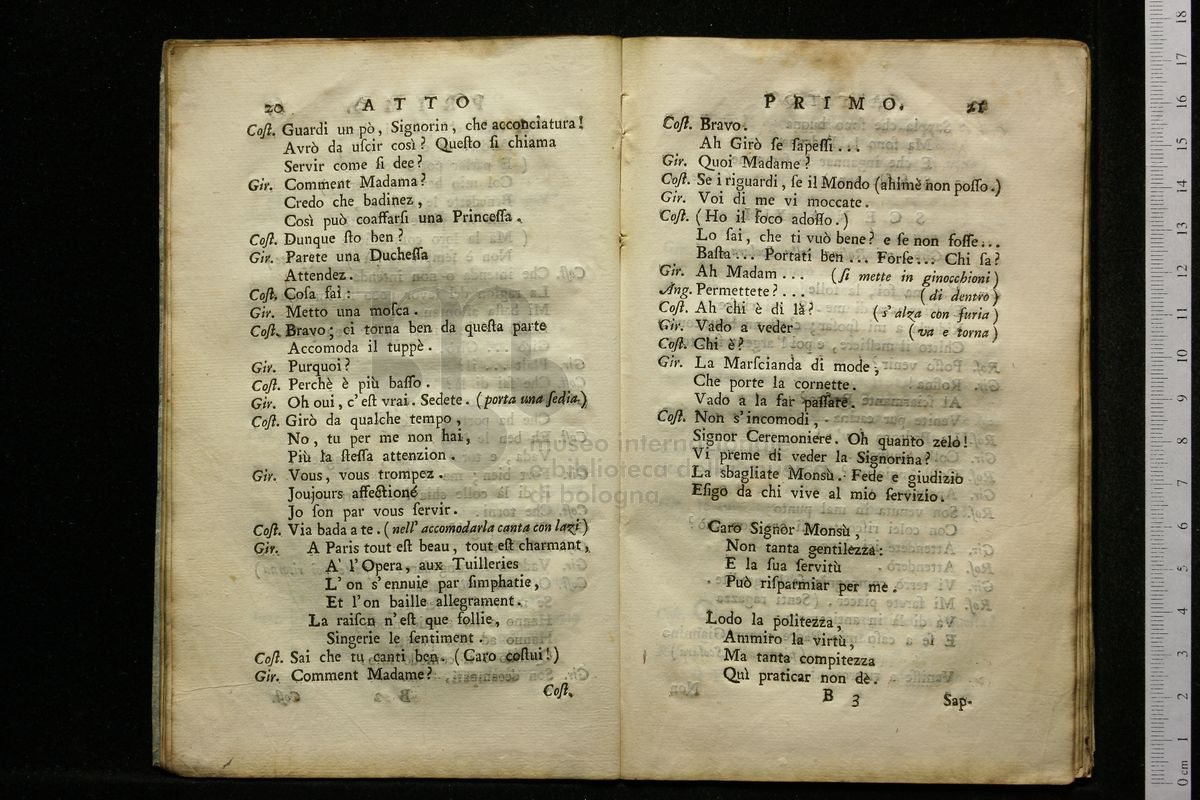 20 ATTO
Coſt. Guardi un pò, Signorin, che acconciatura!
Avrò da uſcir così? Queſto ſi chiama
Servir come ſi dee?
Gir. Comment Madama?
Credo che badinez,
Così può coaffarſi una Princeſſa.
Coſt. Dunque ſto ben?
Gir. Parete una Ducheſſa
Attendez.
Coſt. Coſa fai:
Gir. Metto una moſca.
Coſt. Bravo; ci torna ben da queſta parte
Accomoda il tuppè.
Gir. Purquoi?
Coſt. Perchè è più baſſo.
Gir. Oh oui, c'eſt vrai. Sedete. (porta una ſedia.)
Coſt. Girò da qualche tempo,
No, tu per me non hai,
Più la ſteſſa attenzion.
Gir. Vous, vous trompez.
Joujours affectioné
Jo ſon par vous ſervir.
Coſt. Via bada a te. (nell' accomodarla canta con lazi)
Gir. A Paris tout eſt beau, tout eſt charmant,
A' l'Opera, aux Tuilleries
L'on s'ennuie par ſimphatie,
Et l'on baille allegrament.
La raiſon n'eſt que follie,
Singerie le ſentiment.
Coſt. Sai che tu canti ben. (Caro coſtui!)
Gir. Comment Madame?
Coſt.
PRIMO. 21
Coſt. Bravo.
Ah Girò ſe ſapeſſi...
Gir. Quoi Madame?
Coſt. Se i riguardi, ſe il Mondo (ahimè non poſſo.)
Gir. Voi di me vi moccate.
Coſt. (Ho il foco adoſſo.)
Lo ſai, che ti vuò bene? e ſe non foſſe...
Baſta... Portati ben... Forſe... Chi ſa?
Gir. Ah Madam... (ſi mette in ginocchioni)
Ang. Permettete?... (di dentro)
Coſt. Ah chi è di là? (s'alza con furia)
Gir. Vado a veder (va e torna)
Coſt. Chi è?
Gir. La Marſcianda di mode,
Che porte la cornette.
Vado a la far paſſare.
Coſt. Non s'incomodi,
Signor Ceremoniere. Oh quanto zelo!
Vi preme di veder la Signorina?
La sbagliate Monsù. Fede e giudizio
Eſigo da chi vive al mio ſervizio.
Caro Signor Monsù,
Non tanta gentilezza:
E la ſua ſervitù
Può riſparmiar per me.
Lodo la politezza,
Ammiro la virtù,
Ma tanta compitezza
Quì praticar non dè.
B 3 Sap-
museo internazionale
e biblioteca della
di bologna